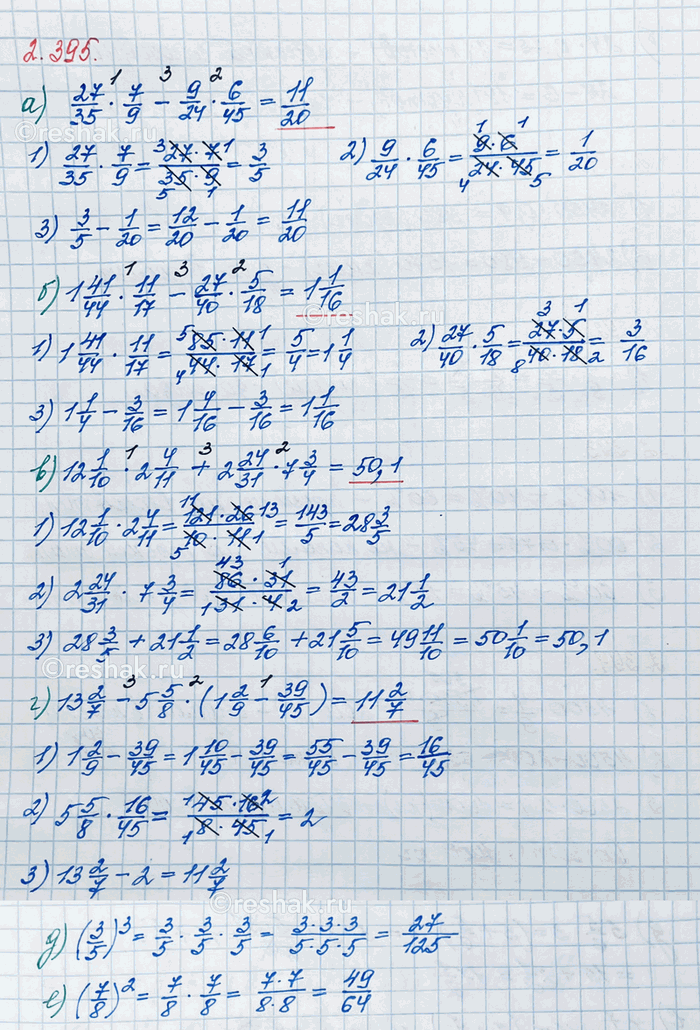 2.395.
а) 27/35 · 7/9 - 9/24 · 6/45 = 11/20
1) 27/35 · 7/9 = 27·7/35·9 = 3/5 2) 9/24 · 6/45 = 9·6/24·45 = 1/20
3) 3/5 - 1/20 = 12/20 - 1/20 = 11/20
б) 1 41/44 · 11/17 - 27/40 · 5/18 = 1 1/16
1) 1 41/44 · 11/17 = 85·11/44·17 = 5/4 = 1 1/4 2) 27/40 · 5/18 = 27·5/40·18 = 3/16
3) 1 1/4 - 3/16 = 1 4/16 - 3/16 = 1 1/16
в) 12 1/10 · 2 4/11 + 2 24/31 · 7 3/4 = 50,1
1) 12 1/10 · 2 4/11 = 121·26/10·11 = 143/5 = 28 3/5
2) 2 24/31 · 7 3/4 = 86·31/31·4 = 43/2 = 21 1/2
3) 28 3/5 + 21 1/2 = 28 6/10 + 21 5/10 = 49 11/10 = 50 1/10 = 50,1
г) 13 2/7 - 5 5/8 · (1 2/9 - 39/45) = 11 2/7
1) 1 2/9 - 39/45 = 1 10/45 - 39/45 = 55/45 - 39/45 = 16/45
2) 5 5/8 · 16/45 = 45·16/8·45 = 2
3) 13 2/7 - 2 = 11 2/7
д) (3/5)³ = 3/5 · 3/5 · 3/5 = 3·3·3/5·5·5 = 27/125
е) (7/8)² = 7/8 · 7/8 = 7·7/8·8 = 49/64